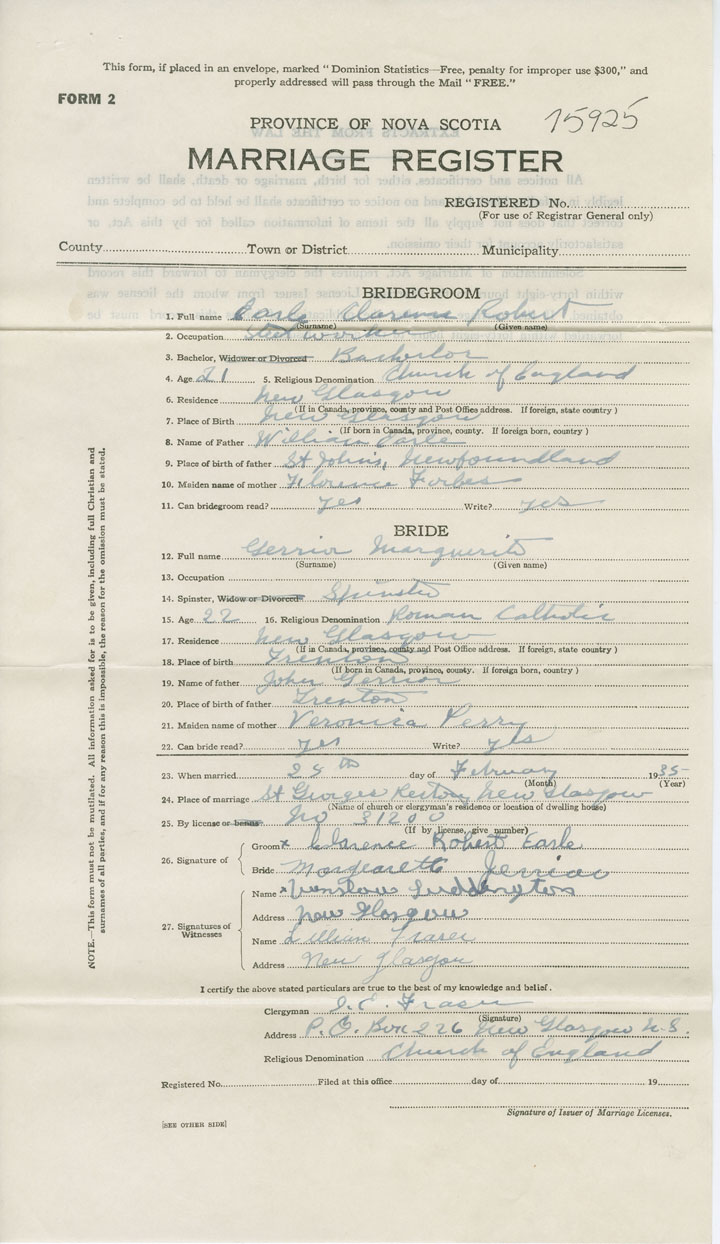 This form, if placed in an envelope, marked " Dominion Statistics—Free, penalty for improper use $300," and
properly addressed will pass through the Mail " FREE."
FORM 2
PROVINCE OF NOVA SCOTIA
15925
MARRIAGE REGISTER
REGISTERED No.
(For use of Registrar General only)
County Town or District Municipality
BRIDEGROOM
1. Full name Earle Clarence Robert
(Surname) (Given name)
2. Occupation Steel worker
3. Bachelor, Widower or Divorced Bachelor
4. Age 21 5. Religious Denomination Church of England
6. Residence New Glasgow
(If in Canada, province, county and Post Office address. If foreign, state country )
7. Place of Birth New Glasgow
(If born in Canada, province, county. If foreign born, country )
8. Name of Father William Earle
9. Place of birth of father St John's, Newfoundland
10. Maiden name of mother Florence Forbes
11. Can bridegroom read? yes Write? yes
BRIDE
12. Full name Gerrior Marguerite
(Surname) (Given name)
13. Occupation
14. Spinster, Widow or Divorced Spinster
15. Age 22 16. Religious Denomination Roman Catholic
17. Residence New Glasgow
(If in Canada, province, county and Post Office address. If foreign, state country )
18. Place of birth Trenton
(If born in Canada, province, county. If foreign born, country )
19. Name of father John Gerrior
20. Place of birth of father Trenton
21. Maiden name of mother Veronica Perry
22. Can bride read? yes Write? yes
23. When married 25th day of February 1935
(Month) (Year)
24. Place of marriage St Georges Rectory New Glasgow
(Name of church or clergyman's residence or location of dwelling house)
25. By license or banns No 31200
(If by license, give number)
26. Signature of
Groom x Clarence Robert Earle
Bride Margearette Jerrior
27. Signatures of Witnesses
Name x Winston Luddington
Address New Glasgow
Name Lillian Fraser
Address New Glasgow
I certify the above stated particulars are true to the best of my knowledge and belief.
Clergyman Fraser
(Signature)
Address P.O. Box 226 New Glasgow N.S.
Religious Denomination Church of England
Registered No. Filed at this office day of 19
Signature of Issuer of Marriage Licenses.
[SEE OTHER SIDE]
NOTE.—This form must not be mutilated. All information asked for is to be given, including full Christian and
surnames of all parties, and if for any reason this is impossible, the reason for the omission must be stated.